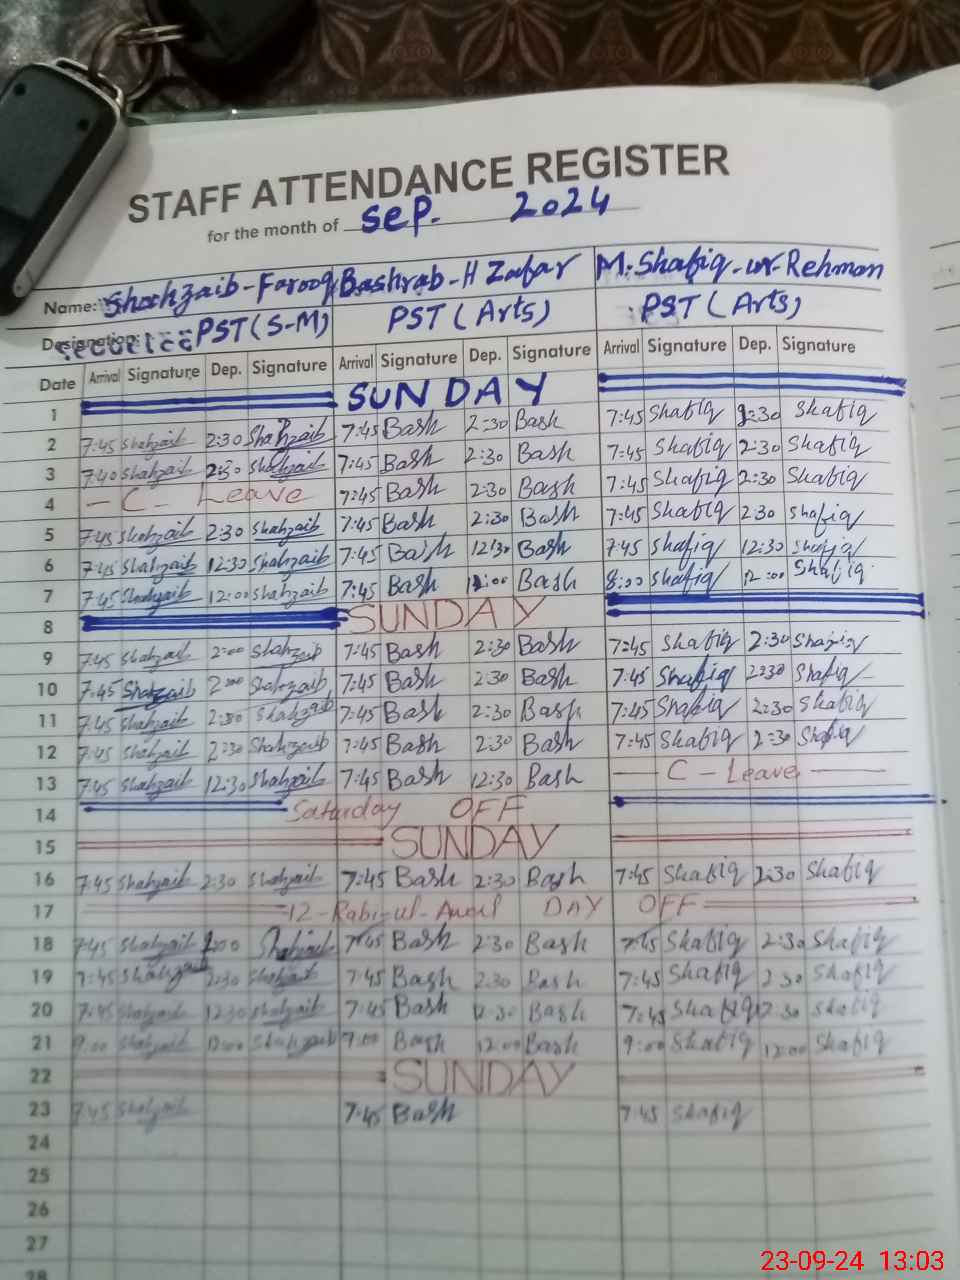 STAFF ATTENDANCE REGISTER
for the month of Sep. 2024
Name: Shahzaib-Farooq Bashrab-H Zafar M.Shafiq-ur-Rehman
Designation: PST (S-M) PST (Arts) PST (Arts)
Date Arrival Signature Dep. Signature Arrival Signature Dep. Signature Arrival Signature Dep. Signature
1 SUNDAY
2 7:45 Shahzaib 2:30 Shahzaib 7:45 Bash 2:30 Bash 7:45 Shafiq 2:30 Shafiq
3 7:40 Shahzaib 2:30 Shahzaib 7:45 Bash 2:30 Bash 7:45 Shafiq 2:30 Shafiq
4 - C - Leave 7:45 Bash 2:30 Bash 7:45 Shafiq 2:30 Shafiq
5 7:45 Shahzaib 2:30 Shahzaib 7:45 Bash 2:30 Bash 7:45 Shafiq 2:30 Shafiq
6 7:45 Shahzaib 12:30 Shahzaib 7:45 Bash 12:30 Bash 7:45 Shafiq 12:30 Shafiq
7 7:45 Shahzaib 12:00 Shahzaib 7:45 Bash 12:00 Bash 8:00 Shafiq 12:00 Shafiq
8 SUNDAY
9 7:45 Shahzaib 2:00 Shahzaib 7:45 Bash 2:30 Bash 7:45 Shafiq 2:30 Shafiq
10 7:45 Shahzaib 2:00 Shahzaib 7:45 Bash 2:30 Bash 7:45 Shafiq 2:30 Shafiq
11 7:45 Shahzaib 2:30 Shahzaib 7:45 Bash 2:30 Bash 7:45 Shafiq 2:30 Shafiq
12 7:45 Shahzaib 2:30 Shahzaib 7:45 Bash 2:30 Bash 7:45 Shafiq 2:30 Shafiq
13 7:45 Shahzaib 12:30 Shahzaib 7:45 Bash 12:30 Bash C - Leave
14 Saturday OFF
15 SUNDAY
16 7:45 Shahzaib 2:30 Shahzaib 7:45 Bash 2:30 Bash 7:45 Shafiq 2:30 Shafiq
17 12-Rabi-ul-Awal DAY OFF
18 7:45 Shahzaib 2:00 Shahzaib 7:45 Bash 2:30 Bash 7:45 Shafiq 2:30 Shafiq
19 7:45 Shahzaib 2:30 Shahzaib 7:45 Bash 2:30 Bash 7:45 Shafiq 2:30 Shafiq
20 7:45 Shahzaib 12:30 Shahzaib 7:45 Bash 12:30 Bash 7:45 Shafiq 12:30 Shafiq
21 9:00 Shahzaib 12:00 Shahzaib 9:00 Bash 12:00 Bash 9:00 Shafiq 12:00 Shafiq
22 SUNDAY
23 7:45 Shahzaib 7:45 Bash 7:45 Shafiq
24
25
26
27
28
23-09-24 13:03